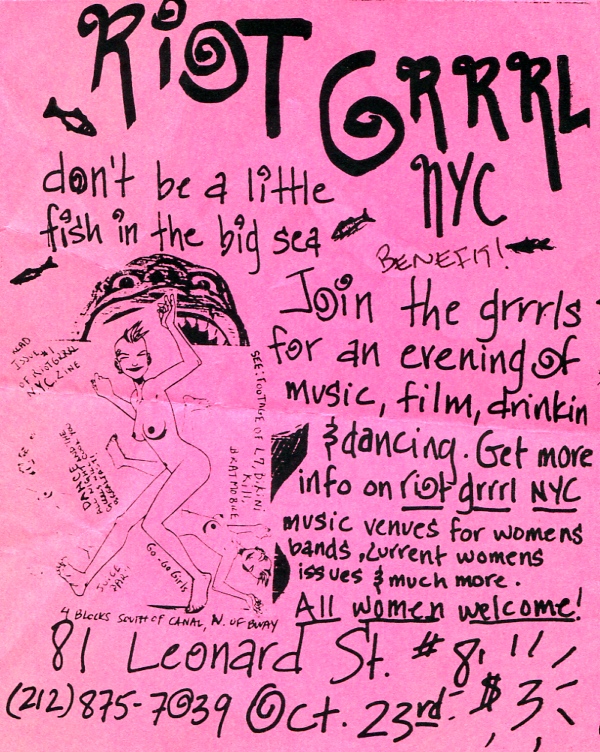 RiOT GRRRL
NYC
don't be a little
fish in the big sea
BENEFIT!
Join the grrrls
for an evening of
music, film, drinkin
& dancing. Get more
info on riot grrrl NYC
music venues for womens
bands, current womens
issues & much more.
All women welcome!
READ
ISSUE #1
OF RIOT GRRRL
NYC ZINE
SEE: FOOTAGE OF L7, BIKINI
KILL
BRATMOBILE
DANCE
JUICE
BAR!
Go-Go Girls
4 BLOCKS SOUTH OF CANAL, N. OF BWAY
81 Leonard St. # 8!
(212) 875-7039 Oct. 23rd. $3